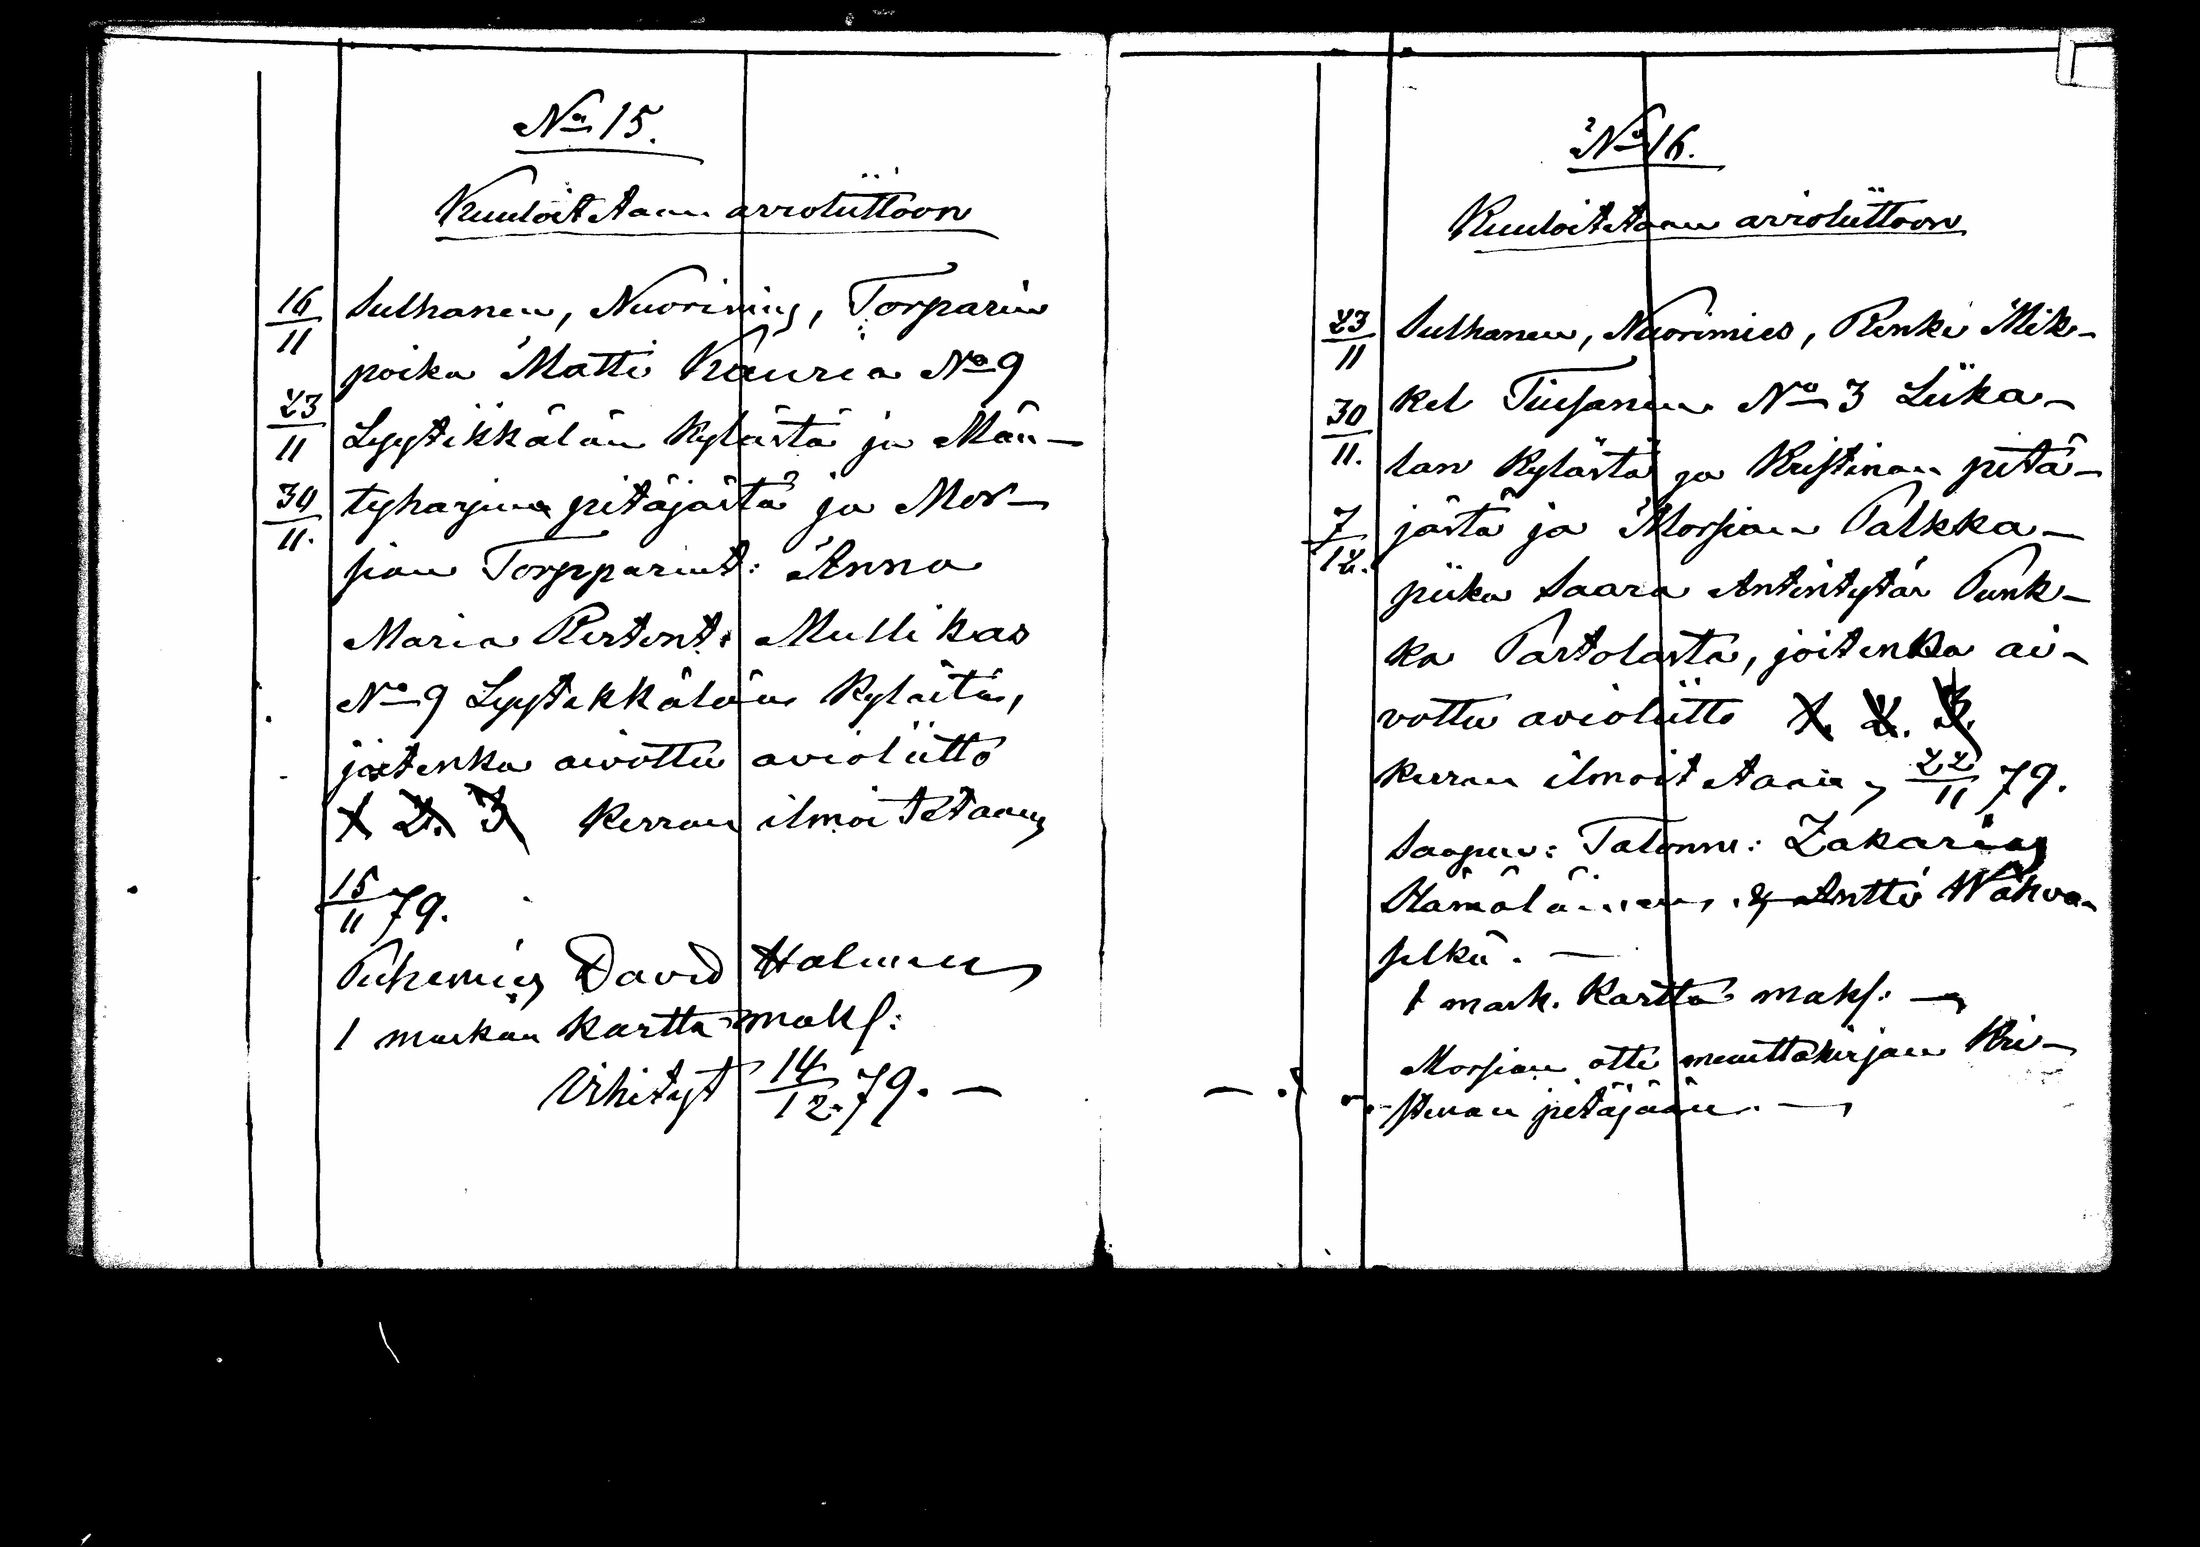 No 15.
Kuuloitetaan avioliittoon
16/11 Sulhanen, Nuorimies, Torparin
poika Matti Kauria No 9
23/11 Lyytikkälän kylästä ja Män-
30/11. tyharjun pitäjästä ja Mor-
sian Torpparint: Anna
Maria Pertint: Mullikas
No 9 Lyytikkälän kylästä,
joitenka aivottu avioliitto
1 2. 3 kerran ilmoitetaan
15/11 79.
Puhemies David Halmen
1 markan kartta maks:
Vihityt 14/12. 79. —
No 16.
Kuuloitetaan avioliittoon
23/11 Sulhanen, Nuorimies, Renki Mik-
30/11. kel Tiusanen No 3 Liika-
lan kylästä ja Kristinan pitä-
7/12. jästä ja Morsian Palkka-
piika Saara Antintytär Punk-
ka Partolasta, joitenka ai-
vottu avioliitto 1. 2. 3.
kerran ilmoitetaan, 22/11 79.
Saapuv: Talonm: Zakarias
Hämäläinen & Antti Wahva-
selkä. —
1 mark. kartta maks: —
Morsian otti muuttokirjan Kri-
stinan pitäjään. —